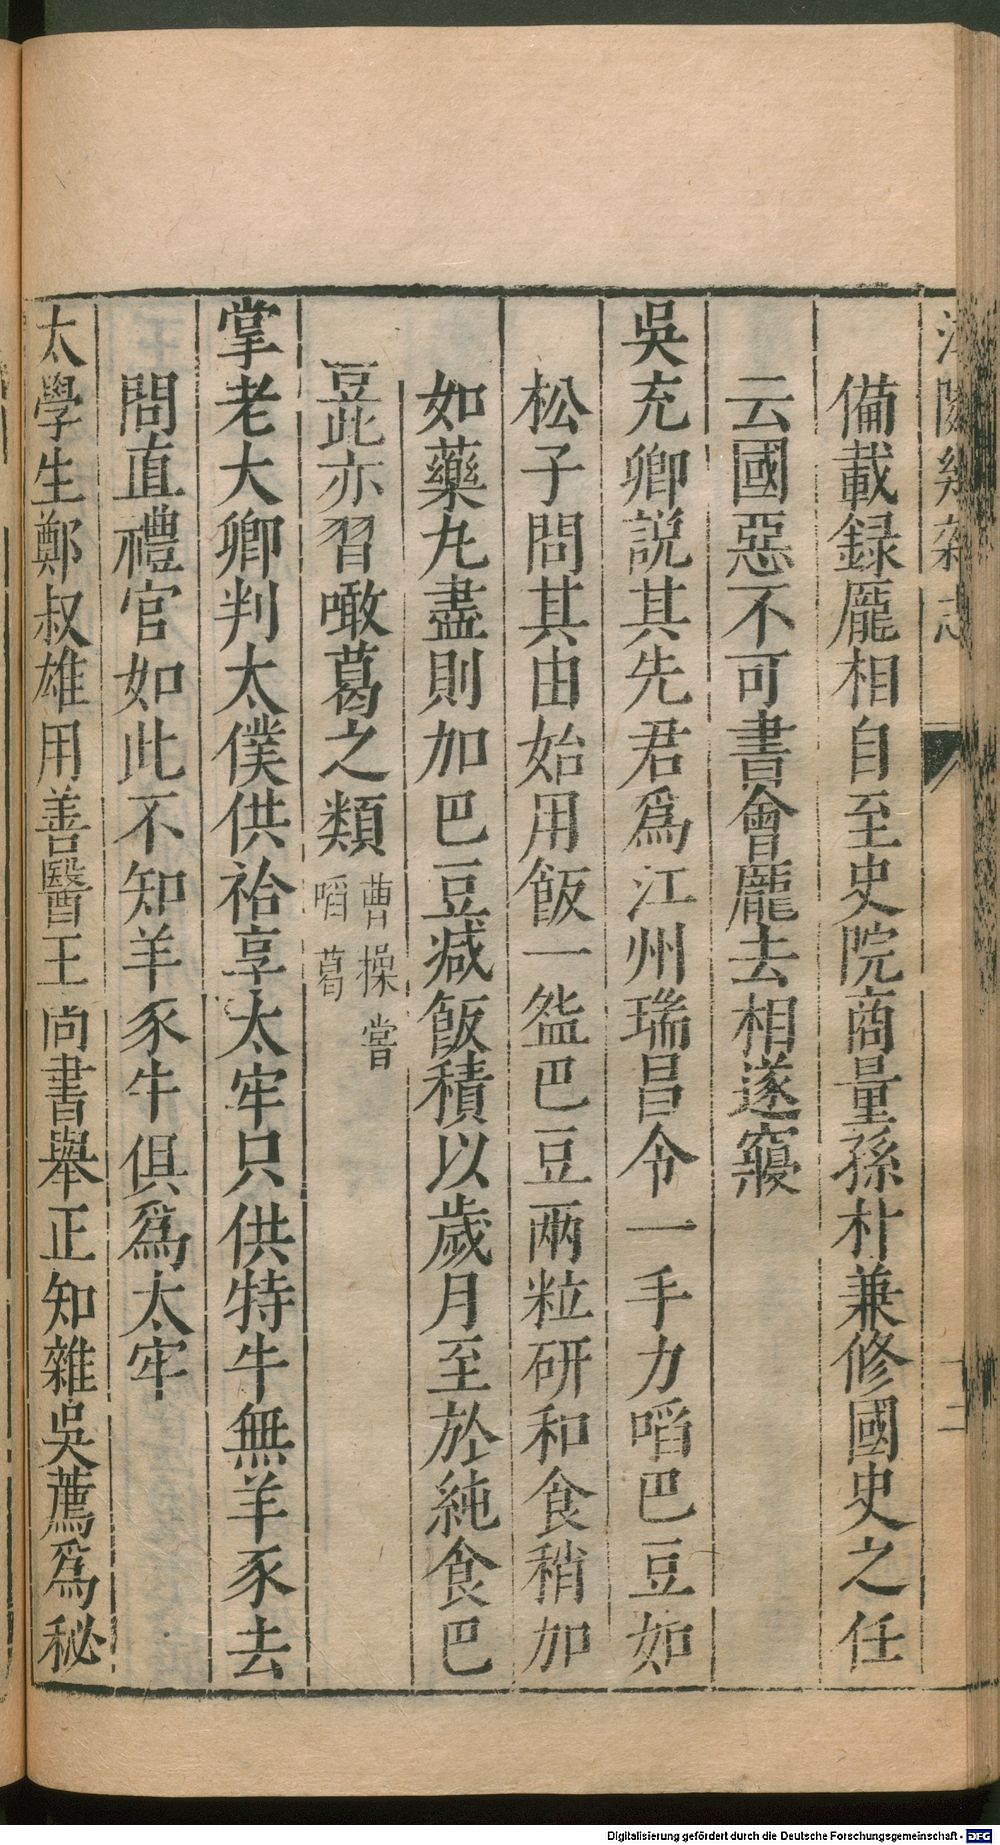 備載録龐相自至史院商量孫朴兼修國史之任
云國惡不可書會龐去相遂寢
吳充卿説其先君爲江州瑞昌令一手力㗖巴豆如
松子問其由始用飯一盌巴豆兩粒研和食稍加
如藥丸盡則加巴豆減飯積以歲月至於純食巴
豆此亦習噉葛之類曹操嘗㗖葛
掌老大卿判太僕供祫享太牢只供特牛無羊豕去
問直禮官如此不知羊豕牛俱爲太牢
太學生鄭叔雄用善醫王尚書舉正知雜吳薦爲秘
Digitalisierung gefördert durch die Deutsche Forschungsgemeinschaft - DFG